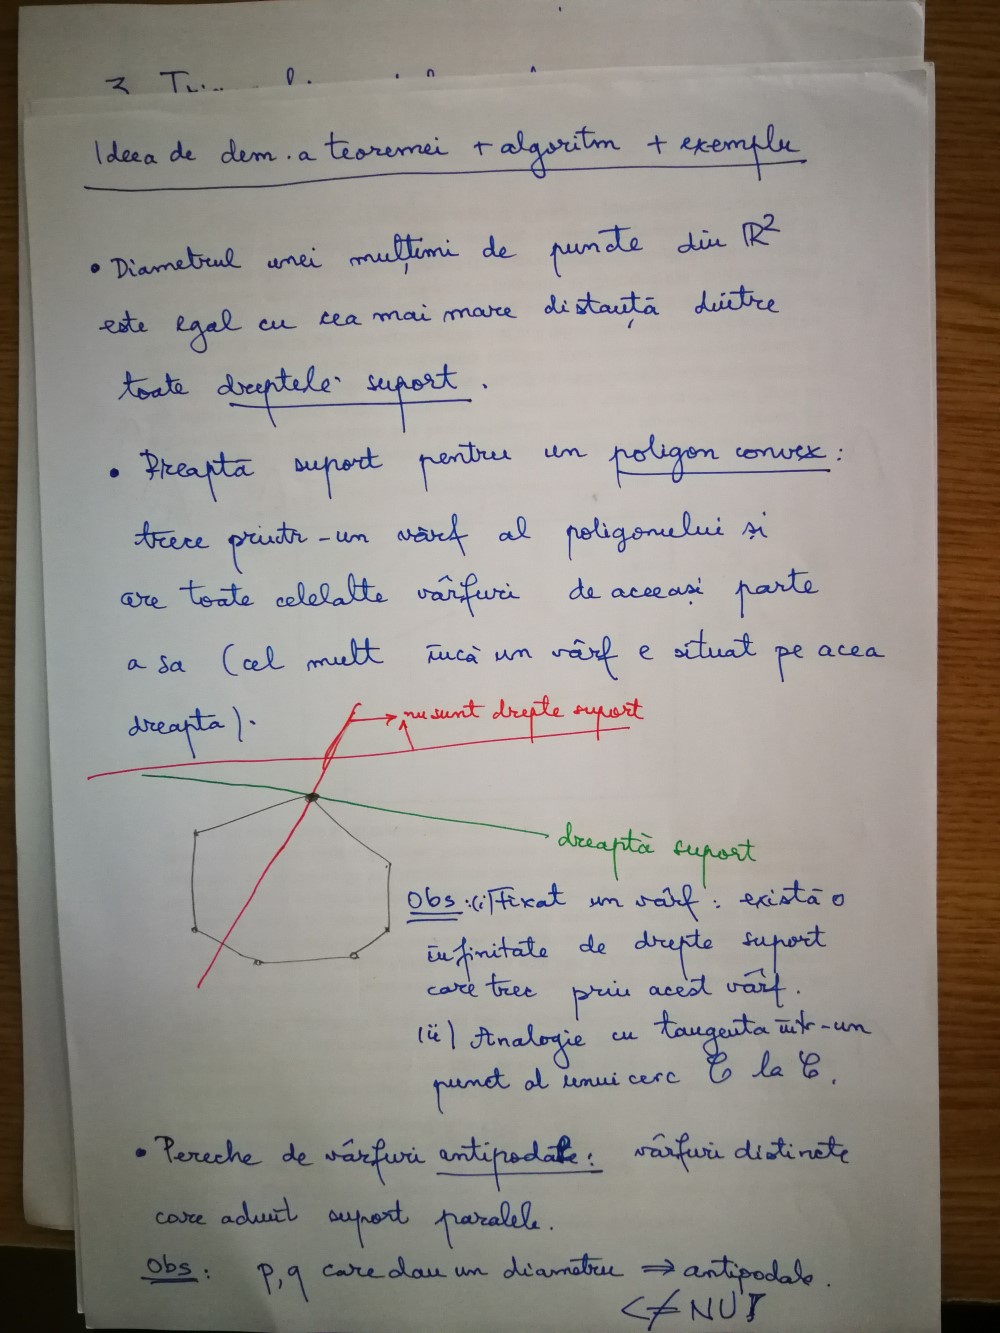 3
Ideea de dem. a teoremei + algoritm + exemplu
• Diametrul unei mulțimi de puncte din ℝ²
este egal cu cea mai mare distanță dintre
toate dreptele suport.
• Dreaptă suport pentru un poligon convex:
trece printr-un vârf al poligonului și
are toate celelalte vârfuri de aceeași parte
a sa (cel mult încă un vârf e situat pe acea
dreaptă).
nu sunt drepte suport
dreaptă suport
Obs: (i) Fixat un vârf: există o
infinitate de drepte suport
care trec prin acest vârf.
(ii) Analogie cu tangenta într-un
punct al unui cerc C la C.
• Pereche de vârfuri antipodale: vârfuri distincte
care admit suport paralele.
Obs: p, q care dau un diametru ⇒ antipodale.
⇍ NU!